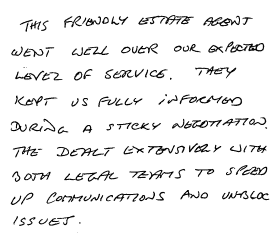 THIS FRIENDLY ESTATE AGENT
WENT WELL OVER OUR EXPECTED
LEVEL OF SERVICE. THEY
KEPT US FULLY INFORMED
DURING A STICKY NEGOTIATION.
THE DEALT EXTENSIVELY WITH
BOTH LEGAL TEAMS TO SPEED
UP COMMUNICATIONS AND UNBLOC
ISSUES.